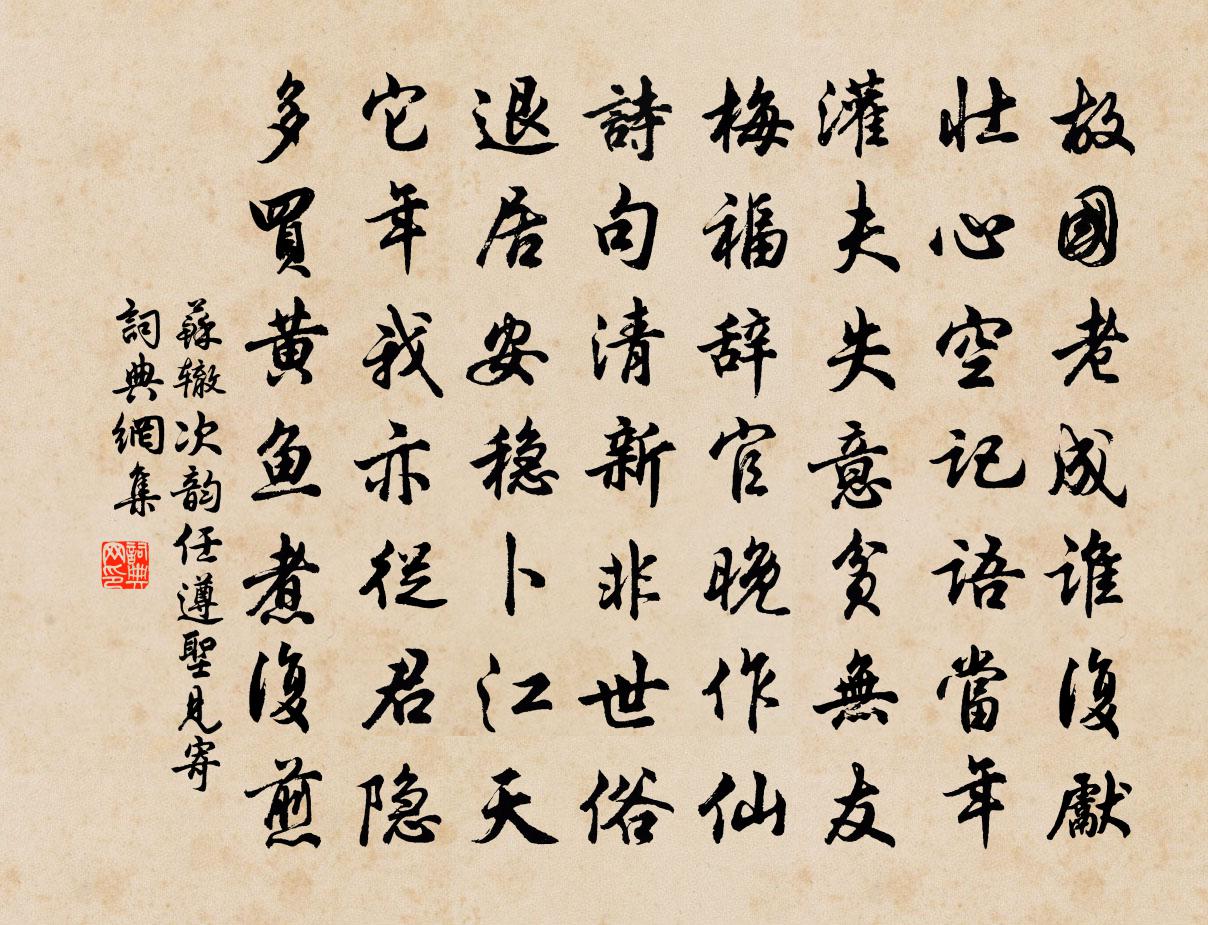 故國老成誰復獻
壯心空記語當年
灌夫失意貧無友
梅福辞官晚作仙
詩句清新非世俗
退居安穏卜江天
它年我亦從君隐
多買黄鱼煮復煎
蘇辙次韵任遵聖見寄
詞典網集
詞典网印